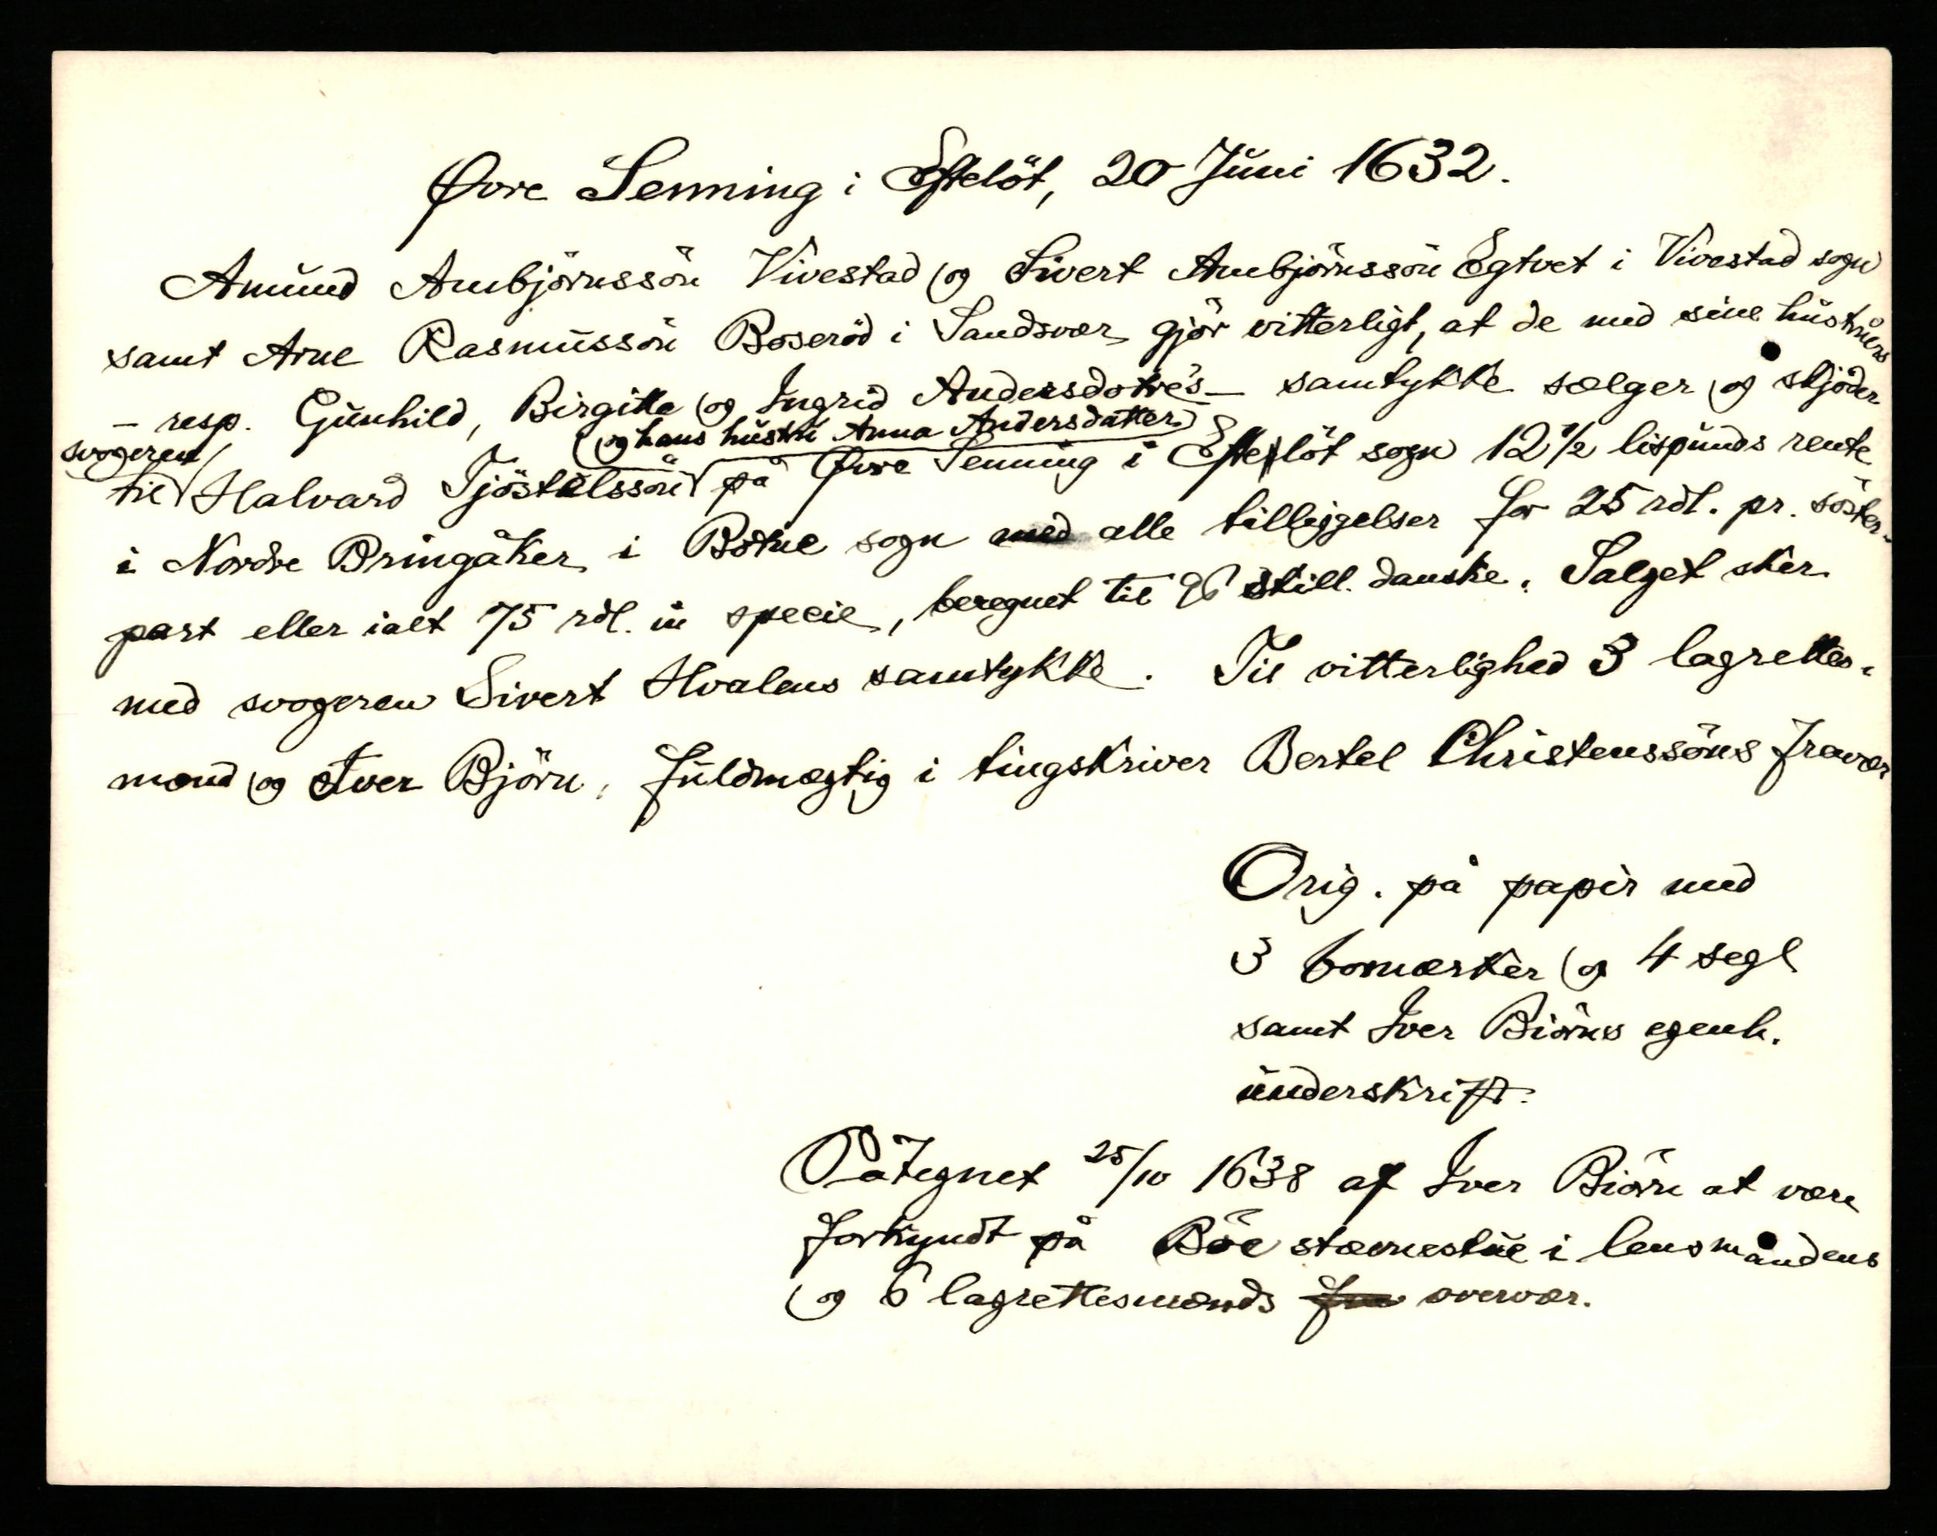 Øvre Senning i Eftelöt, 20 Juni 1632.
Amund Ambjörnssön Vivestad og Sivert Ambjörnssön Egtvet i Vivestad sogn
samt Arne Rasmussön Boseröd i Sandsvær gjör vitterligt, at de med sine hustruers
– resp. Gunhild, Birgitte og Ingrid Andersdotre's – samtykke sælger og skjöder
svogeren og hans hustru Anna Andersdatter
til Halvard Tjöstelssön på Øvre Senning i Eftelöt sogn 12 1/2 lispunds rente
i Nordre Bringåker i Botne sogn med alle tilliggelser for 25 rdl. pr. söster-
part eller ialt 75 rdl. in specie, beregnet til 96 skill. danske. Salget sker
med svogeren Sivert Hvalens samtykke. Til vitterlighed 3 lagrettes-
mænd og Iver Björn, fuldmægtig i tingskriver Bertel Christenssöns fravær
Orig. på papir med
3 bomærker og 4 segl
samt Iver Biörns egenh.
underskrift.
Påtegnet 25/10 1638 af Iver Biörn at være
forkyndt på Böe stævnestue i lensmandens
og 6 lagrettesmænds overvær.